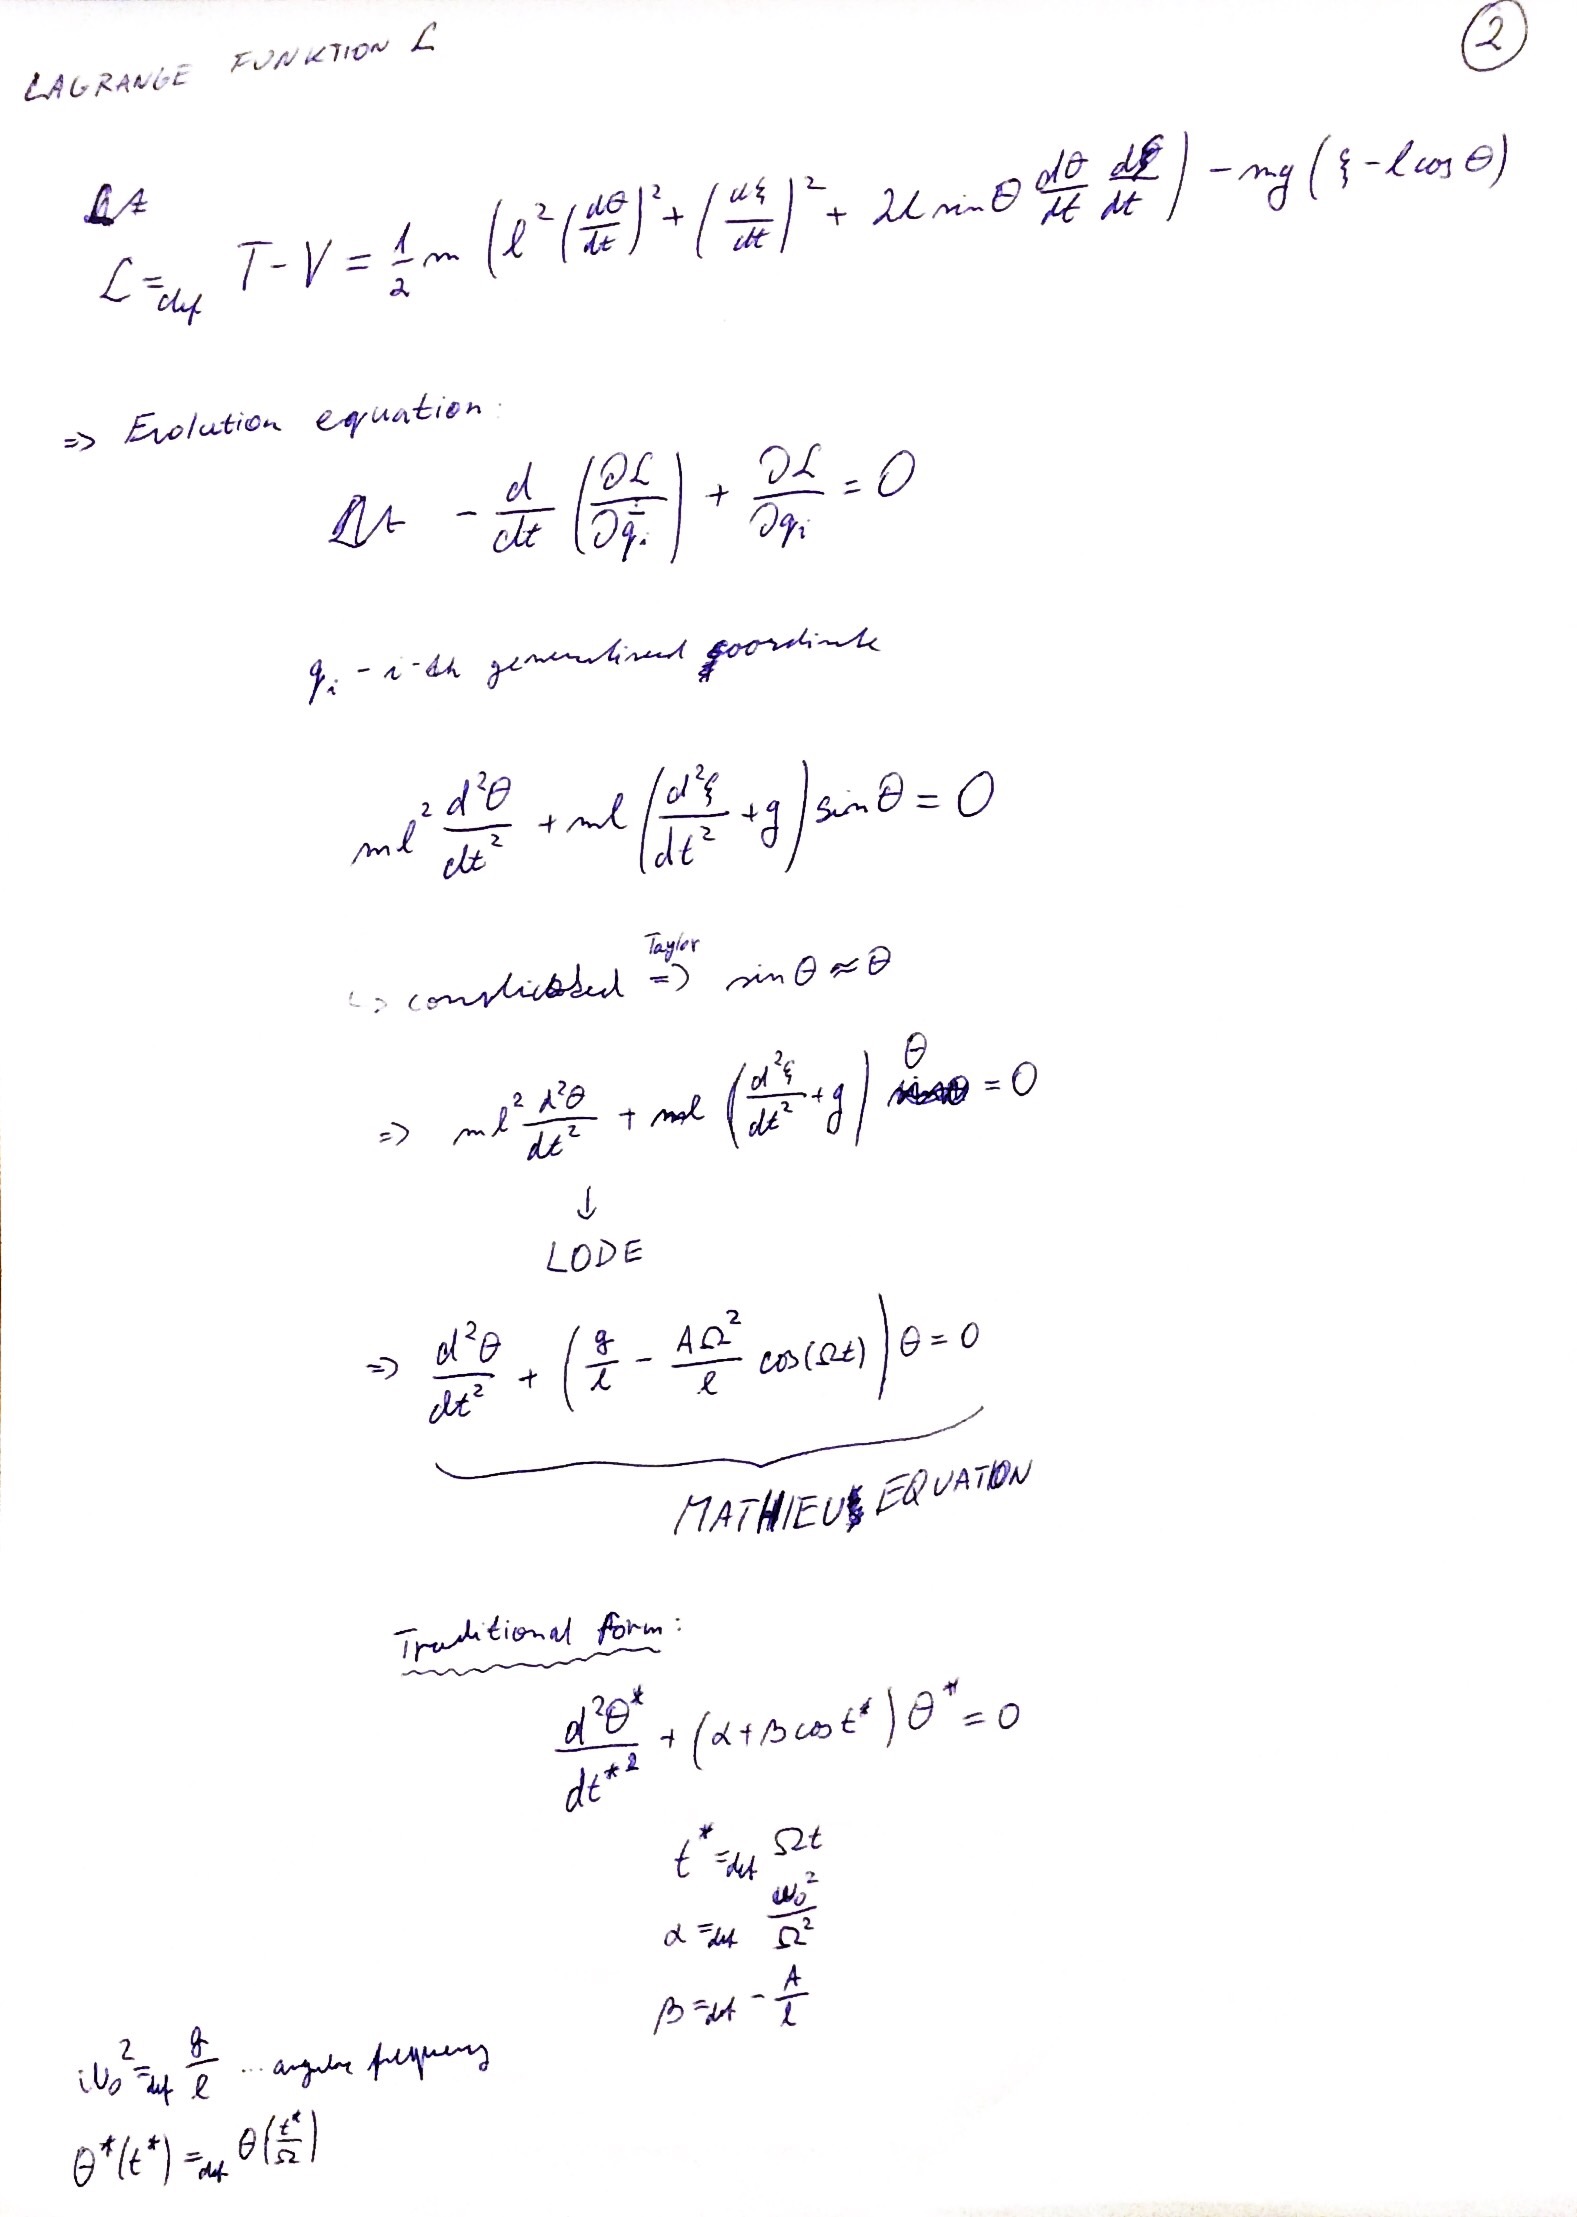 LAGRANGE FUNKTION ℒ
②
ℒ =def T - V = 1/2 m (l² (dθ/dt)² + (dξ/dt)² + 2l sin θ dθ/dt dξ/dt) - mg (ξ - l cos θ)
=> Evolution equation:
- d/dt (∂ℒ/∂q̇ᵢ) + ∂ℒ/∂qᵢ = 0
qᵢ - i-th generalised coordinate
ml² d²θ/dt² + ml (d²ξ/dt² + g) sin θ = 0
↳ complicated =>(Taylor) sin θ ≈ θ
=> ml² d²θ/dt² + ml (d²ξ/dt² + g) θ = 0
↓
LODE
=> d²θ/dt² + (g/l - AΩ²/l cos(Ωt)) θ = 0
MATHIEU EQUATION
Traditional form:
d²θ*/dt*² + (α + β cos t*) θ* = 0
t* =def Ωt
α =def ω₀²/Ω²
β =def - A/l
ω₀² =def g/l ... angular frequency
θ*(t*) =def θ(t*/Ω)